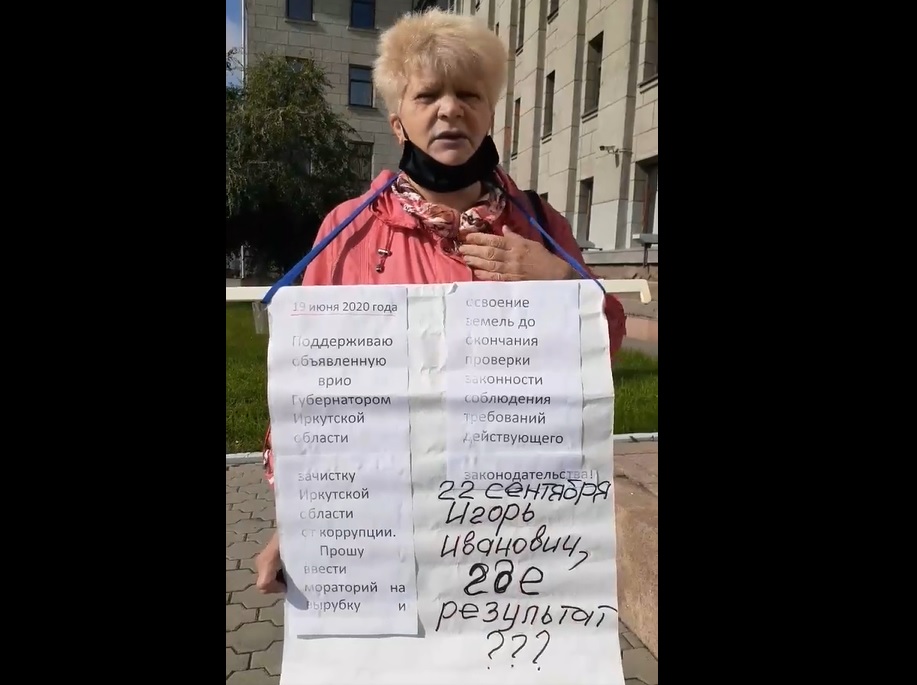 19 июня 2020 года
Поддерживаю
объявленную
врио
Губернатором
Иркутской
области
зачистку
Иркутской
области
от коррупции.
Прошу
ввести
мораторий на
вырубку и
освоение
земель до
окончания
проверки
законности
соблюдения
требований
действующего
законодательства!
22 сентября
Игорь
Иванович,
где
результат
???